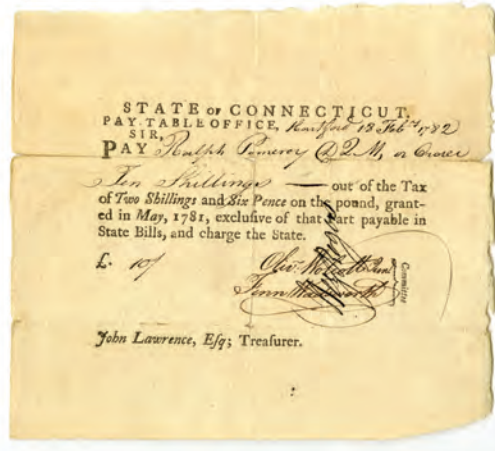 STATE OF CONNECTICUT,
PAY-TABLE OFFICE, Hartford 18 Feby 1782
SIR,
PAY Ralph Pomeroy D Q M, or Order
Ten Shillings — out of the Tax
of Two Shillings and Six Pence on the pound, grant-
ed in May, 1781, exclusive of that part payable in
State Bills, and charge the State.
£. 10/
Olivr Wolcott Junr
Fenn Wadsworth
Committee
John Lawrence, Esq; Treasurer.